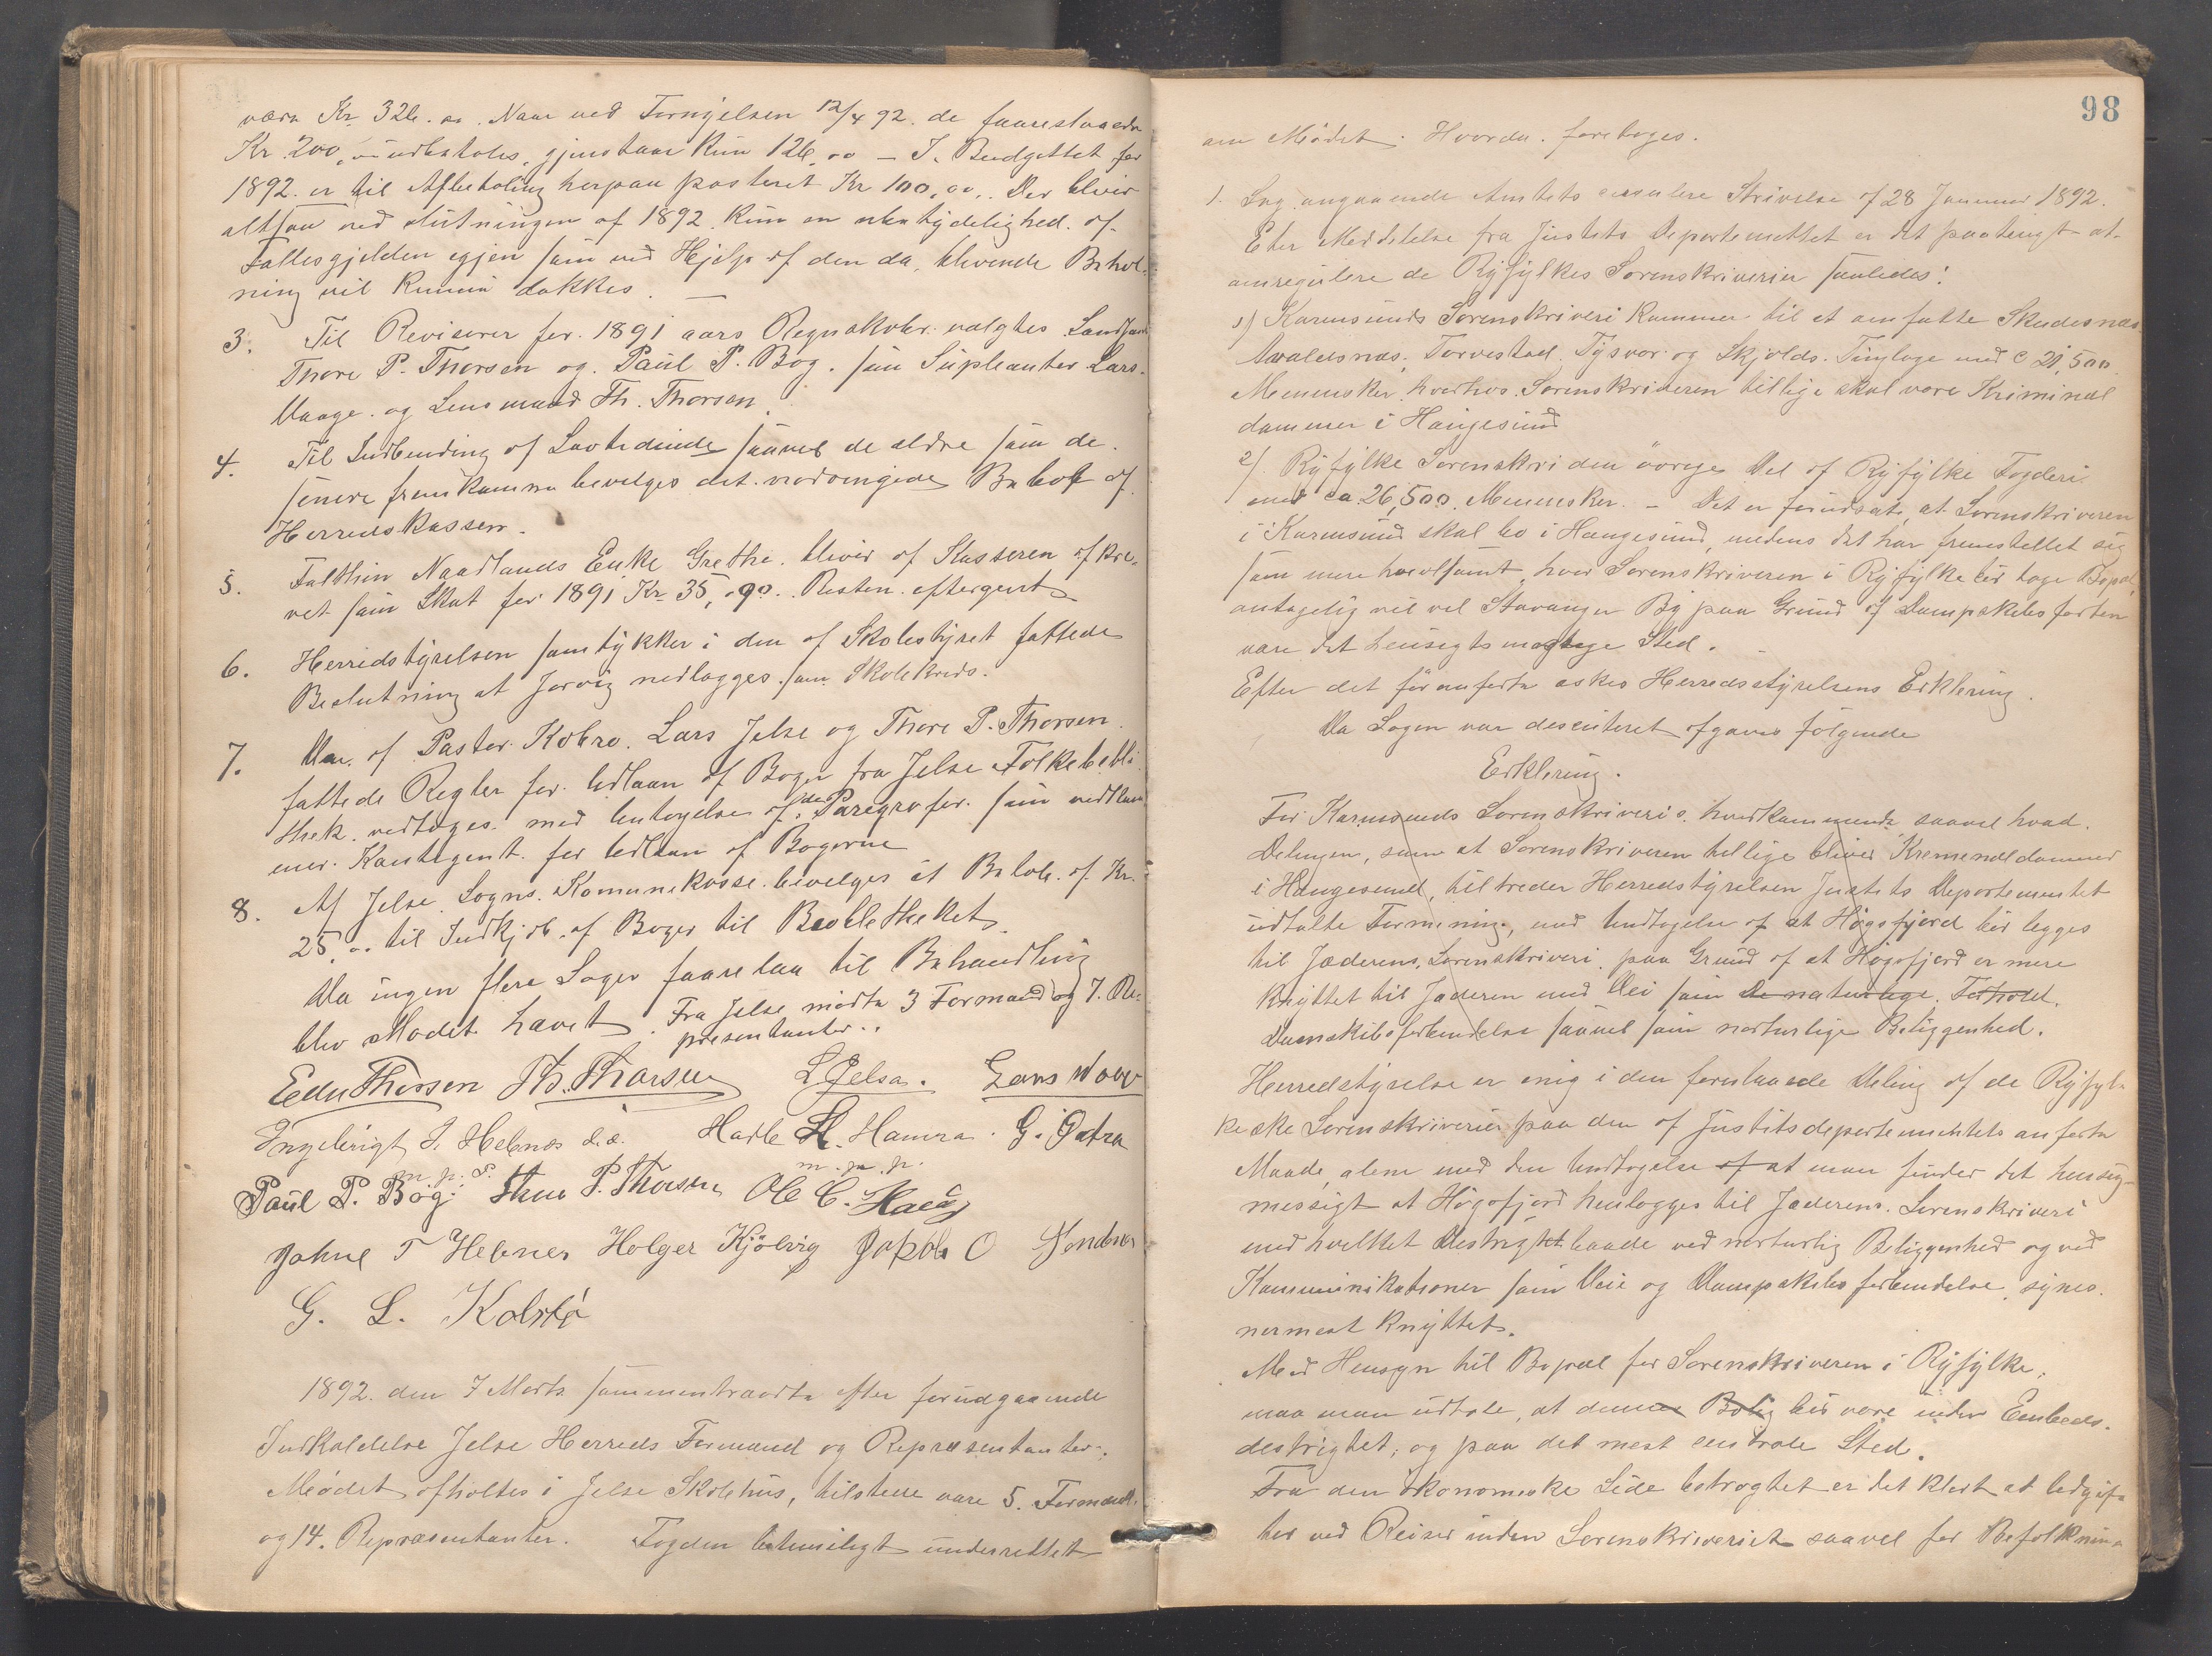 være Kr 326.oo. Naar ved Fornyelsen 12/4 92. de faarestaaende
Kr. 200,oo udbetales, gjenstaar kun 126,oo — I. Budgettet for
1892. er til Afbetaling herpaa posteret Kr 100,oo. Der bliver
altsaa ved slutningen af 1892 kun en ubetydelighed. af
Fallesgjelden igjen som ved Hjelp af den da, blivende Behol-
ning vil kunne dakkes. —
3. Til Revisorer for. 1891 aars Regnskaber valgtes Landhand
Thore P. Thorsen og. Paul P. Bog. som Supleanter Lars.
Vaage. og Lensmand Th. Thorsen.
4. Til Indbending af Lovtidende saavel de aldre som de.
senere fremkomne bevilges det nødvengide Beløb af
Herredskassen.
5. Falthin Naadlands Enke Grethe. bliver af Kasseren afkre-
vet som Skat for 1891 Kr 35,90. Resten eftergivet
6. Herredstyrelsen samtykker i den af Skolestyret fattede
Beslutning at Jørvig nedlagges. som Skolekreds.
7. Den. af Pastor Kobro. Lars Jelse og Thore P. Thorsen.
fattede Regler for. Udlaan af Boger fra Jelse Folkebebli
thek. vedtages. med Untagelse af de Paregrafer. som vedkom
mer. Kontigent. for Udlaan af Bøgerne
8. Af Jelse Sogns. Komunekasse bevilges et Beløb. af Kr.
25,oo til Indkjøb. af Boger til Beobletheket.
Da ingen flere Sager faarelaa til Behandling
blev Mødet. havet. Fra Jelse mødte 3 Formænd og 7. Re-
præsentanter..
Edw Thiessen Th. Thorsen L Jelsa. Lars Vaag
Engebrigt T. Hebnes d.æ. Halle H. Hamra. G. Østra
m. p. P. m. p. p.
Paul P. Bog. Thore P. Thorsen Ole C. Haay
Johne T Hebnes Holger Kjølvig Jakob O Sondenaa
G. L. Kolstø
1892. den 7 Marts sammentraadte efter forudgaaende
Indkaldelse Jelse Herreds Formænd og Repræsentanter.
Mødet afholtes i Jelse Skolehus, tilstede vare 5. Formænd.
og 14. Repræsentanter. Fogden betimeligt underrettet
98
om Mødet. Hvorda. foretoges.
1. Sag. angaaende Amtets cirsulere Skrivelse af 28 Januar 1892.
Eter Meddelelse fra Justits Departemettet er det paatengt at
omregulere de Ryfylkes Sorenskriverier saaledes:
1) Karmsunds Sorenskriveri kommer til et omfatte Skudesnæs
Avaldsnæs, Torvestad. Tysvær og Skjolds. Tinglage med C 21,500
Mennesker, hvorhos. Sorenskriveren tillige skal være Kriminal
dommer i Haugesund
2) Ryfylke Sorenskri den øvrige Del af Ryfylke Fogderi
med ca 26,500 Mennesker. — Det er forudsat, at Sorenskriveren
i Karmsund skal bo i Haugesund, medens det har fremstellet sig
som mere tvevlsomt, hvor Sorenskriveren i Ryfylke bør tage Bopæl,
antagelig vil vel Stavanger By paa Grund af Dampskibsfarten
være det hensigtsmæsige Sted.
Efter det foranførte øskes Herredsstyrelsens Erklering.
Da Sagen var descuteret afgaves følgende
Erklering.
For Karmsunds Sorenskriveris. hvedkommende saavel hvad.
Delingen, som at Sorenskriveren tillige bliver Kremenaldommer
i Haugesund, tiltreder Herredstyrelsen Justits Departementet
udtalte Formening, med Undtagelse af at Høgsfjord bør legges
til Jæderens, Sorenskriveri. paa Grund af at Høgsfjord er mere
knyttet til Jæderen med Vei som De naturlige. Forhold.
Damskibsforbendelse saavel som norturlige Beliggenhed.
Herredstyrelse er enig i den forestaaede Deling af de Ryfyl-
keske Sorenskriverier paa den af Justitsdepartementets anførte
Maade, alene med den Undtagelse af at man finder det hensig-
messigt at Høgsfjord henlegges til Jæderens. Sorenskriveri
med hvelket Destrigtet baade ved norturlig Beliggenhed og ved
Kommunikationer som Veie og Dampskibsforbendelse, synes.
nermest knyttet.
Med Hensyn til Bopæl for Sorenskriveren i Ryfylke,
maa man udtale, at denne Bolig bør være inden Embeds.
destrigtet, og paa det mest sentrale Sted.
Fra den økonomeske Side betragtet er det klart at Udgif-
ter ved Reiser inden Sorenskriveriet saavel for Befolknin